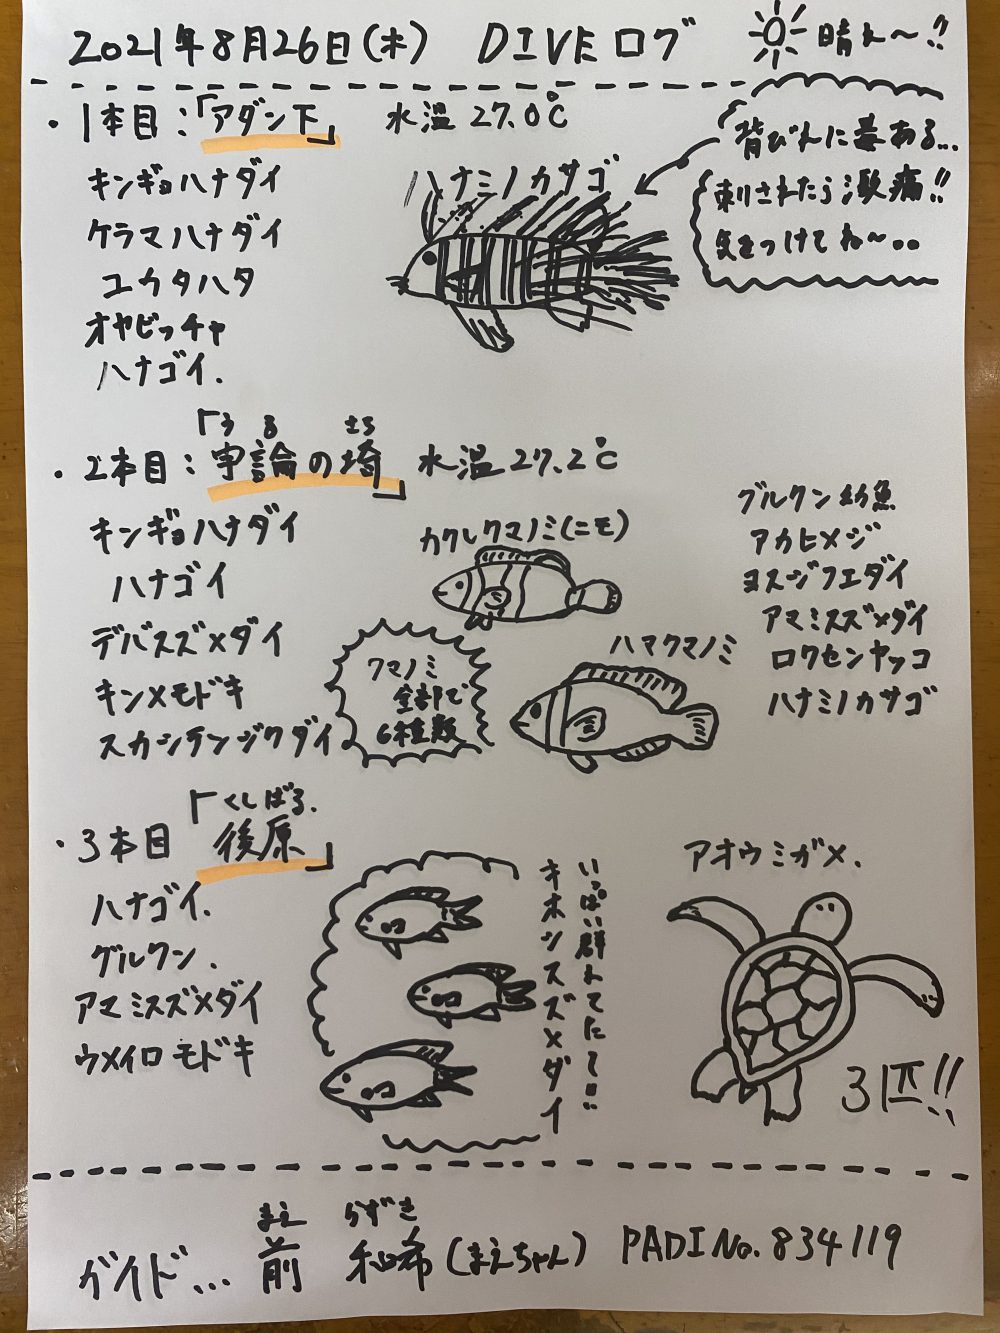 2021年8月26日(木) DIVEログ 晴れ〜!!
・1本目:「アダン下」 水温27.0℃
キンギョハナダイ
ケラマハナダイ
ユカタハタ
オヤビッチャ
ハナゴイ.
ハナミノカサゴ
背びれに毒ある...
刺されたら激痛!!
気をつけてね〜..
うるさち
・2本目:「宇論の埼」 水温27.2℃
キンギョハナダイ
ハナゴイ
デバスズメダイ
キンメモドキ
スカシテンジクダイ
カクレクマノミ(ニモ)
クマノミ
全部で
6種類
ハマクマノミ
グルクン幼魚
アカヒメジ
ヨスジフエダイ
アマミスズメダイ
ロクセンヤッコ
ハナミノカサゴ
くしばる.
・3本目「後原」
ハナゴイ.
グルクン.
アマミスズメダイ
ウメイロモドキ
いっぱい群れてたて!!
キホシスズメダイ
アオウミガメ.
3匹!!
まえ かずき
ガイド... 前 和希(まえちゃん) PADI No.834119